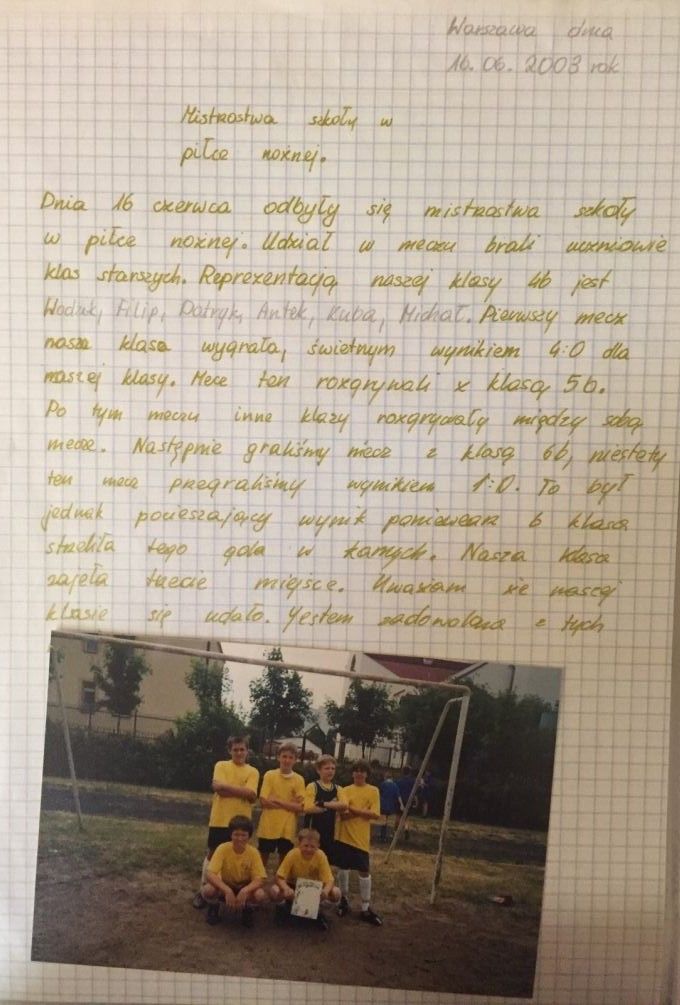 Warszawa dnia
16.06.2003 rok
Mistrostwa szkoły w
piłce nożnej.
Dnia 16 czerwca odbyły się mistrostwa szkoły
w piłce nożnej. Udział w meczu brali uczniowie
klas starszych. Reprezentacją naszej klasy 4b jest
Filip, Patryk, Antek, Kuba, Michał. Pierwszy mecz
nasza klasa wygrała, świetnym wynikiem 4:0 dla
naszej klasy. Mecz ten rozgrywali z klasą 5b.
Po tym meczu inne klazy rozgrywały między sobą
mecze. Następnie graliśmy mecz z klasą 6b, niestety
ten mecz przegraliśmy wynikiem 1:0. To był
jednak pocieszający wynik poniewearz 6 klasa
strzeliła tego gola w karnych. Nasza klasa
zajęła trzecie miejsce. Uważam że naszej
klasie się udało. Jestem zadowolona z tych